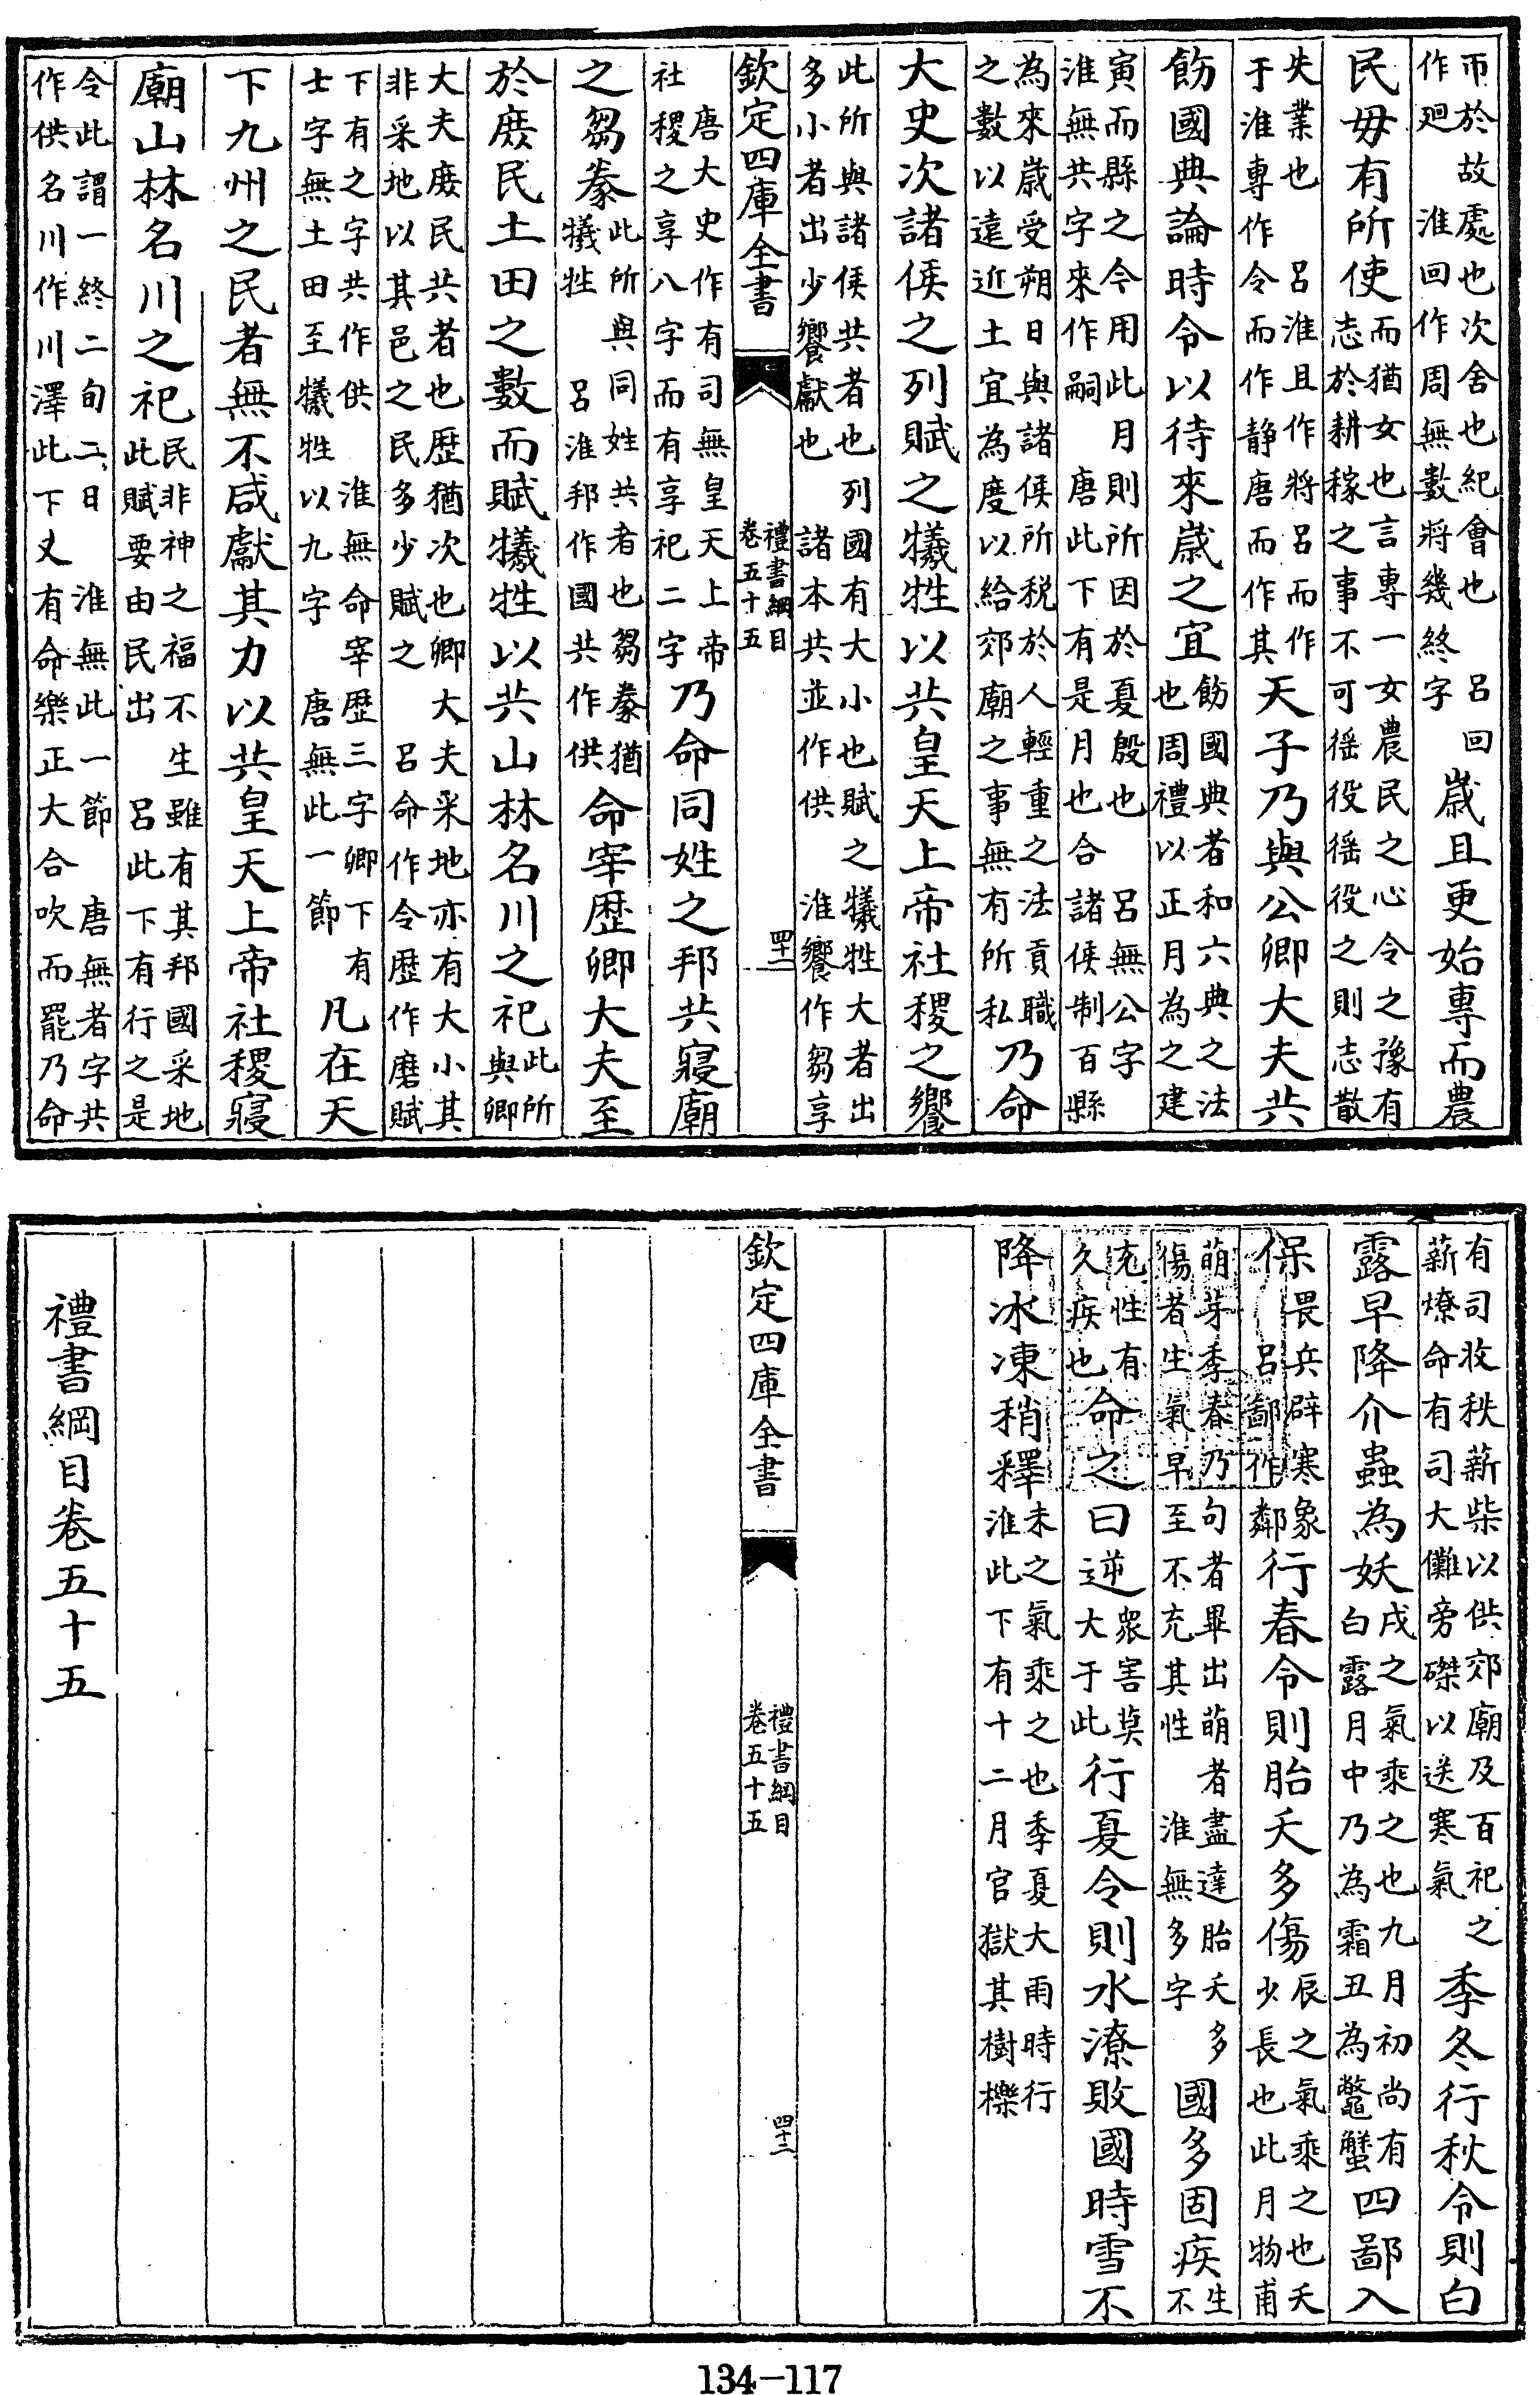 帀於故處也次舍也紀會也　呂回作廻　淮回作周無數將幾終字歲且更始專而農
民毋有所使而猶女也言專一女農民之心令之豫有志於耕稼之事不可徭役徭役之則志散
失業也　呂淮且作將呂而作于淮專作令而作静唐而作其天子乃與公卿大夫共
飭國典論時令以待來歲之宜飭國典者和六典之法也周禮以正月為之建
寅而縣之令用此月則所因於夏殷也　呂無公字淮無共字來作嗣　唐此下有是月也合諸侯制百縣
為來歲受朔日與諸侯所税於人輕重之法貢職之數以遠近土宜為度以給郊廟之事無有所私乃命
大史次諸侯之列賦之犧牲以共皇天上帝社稷之饗
此所與諸侯共者也列國有大小也賦之犧牲大者出多小者出少饗獻也　諸本共並作供　淮饗作芻享
欽定四庫全書　禮書綱目卷五十五　四十二
唐大史作有司無皇天上帝社稷之享八字而有享祀二字乃命同姓之邦共寢廟
之芻豢此所與同姓共者也芻豢猶犧牲　呂淮邦作國共作供命宰歴卿大夫至
於庶民土田之數而賦犧牲以共山林名川之祀此所與卿
大夫庶民共者也歴猶次也卿大夫采地亦有大小其非采地以其邑之民多少賦之　呂命作令歴作磨賦
下有之字共作供　淮無命宰歴三字卿下有士字無土田至犧牲以九字　唐無此一節凡在天
下九州之民者無不咸獻其力以共皇天上帝社稷寢
廟山林名川之祀民非神之福不生雖有其邦國采地此賦要由民出　呂此下有行之是
令此謂一終二旬二日　淮無此一節　唐無者字共作供名川作川澤此下文有命樂正大合吹而罷乃命
有司收秩薪柴以供郊廟及百祀之薪燎命有司大儺旁磔以送寒氣季冬行秋令則白
露早降介蟲為妖戌之氣乘之也九月初尚有白露月中乃為霜丑為鼈蟹四鄙入
保畏兵辟寒象　呂鄙作鄰行春令則胎夭多傷辰之氣乘之也夭少長也此月物甫
萌芽季春乃句者畢出萌者盡達胎夭多傷者生氣早至不充其性　淮無多字國多固疾生不
充性有久疾也命之曰逆衆害莫大于此行夏令則水潦敗國時雪不
降冰凍稍釋未之氣乘之也季夏大雨時行淮此下有十二月官獄其樹櫟
欽定四庫全書　禮書綱目卷五十五　四十三
禮書綱目卷五十五
134-117